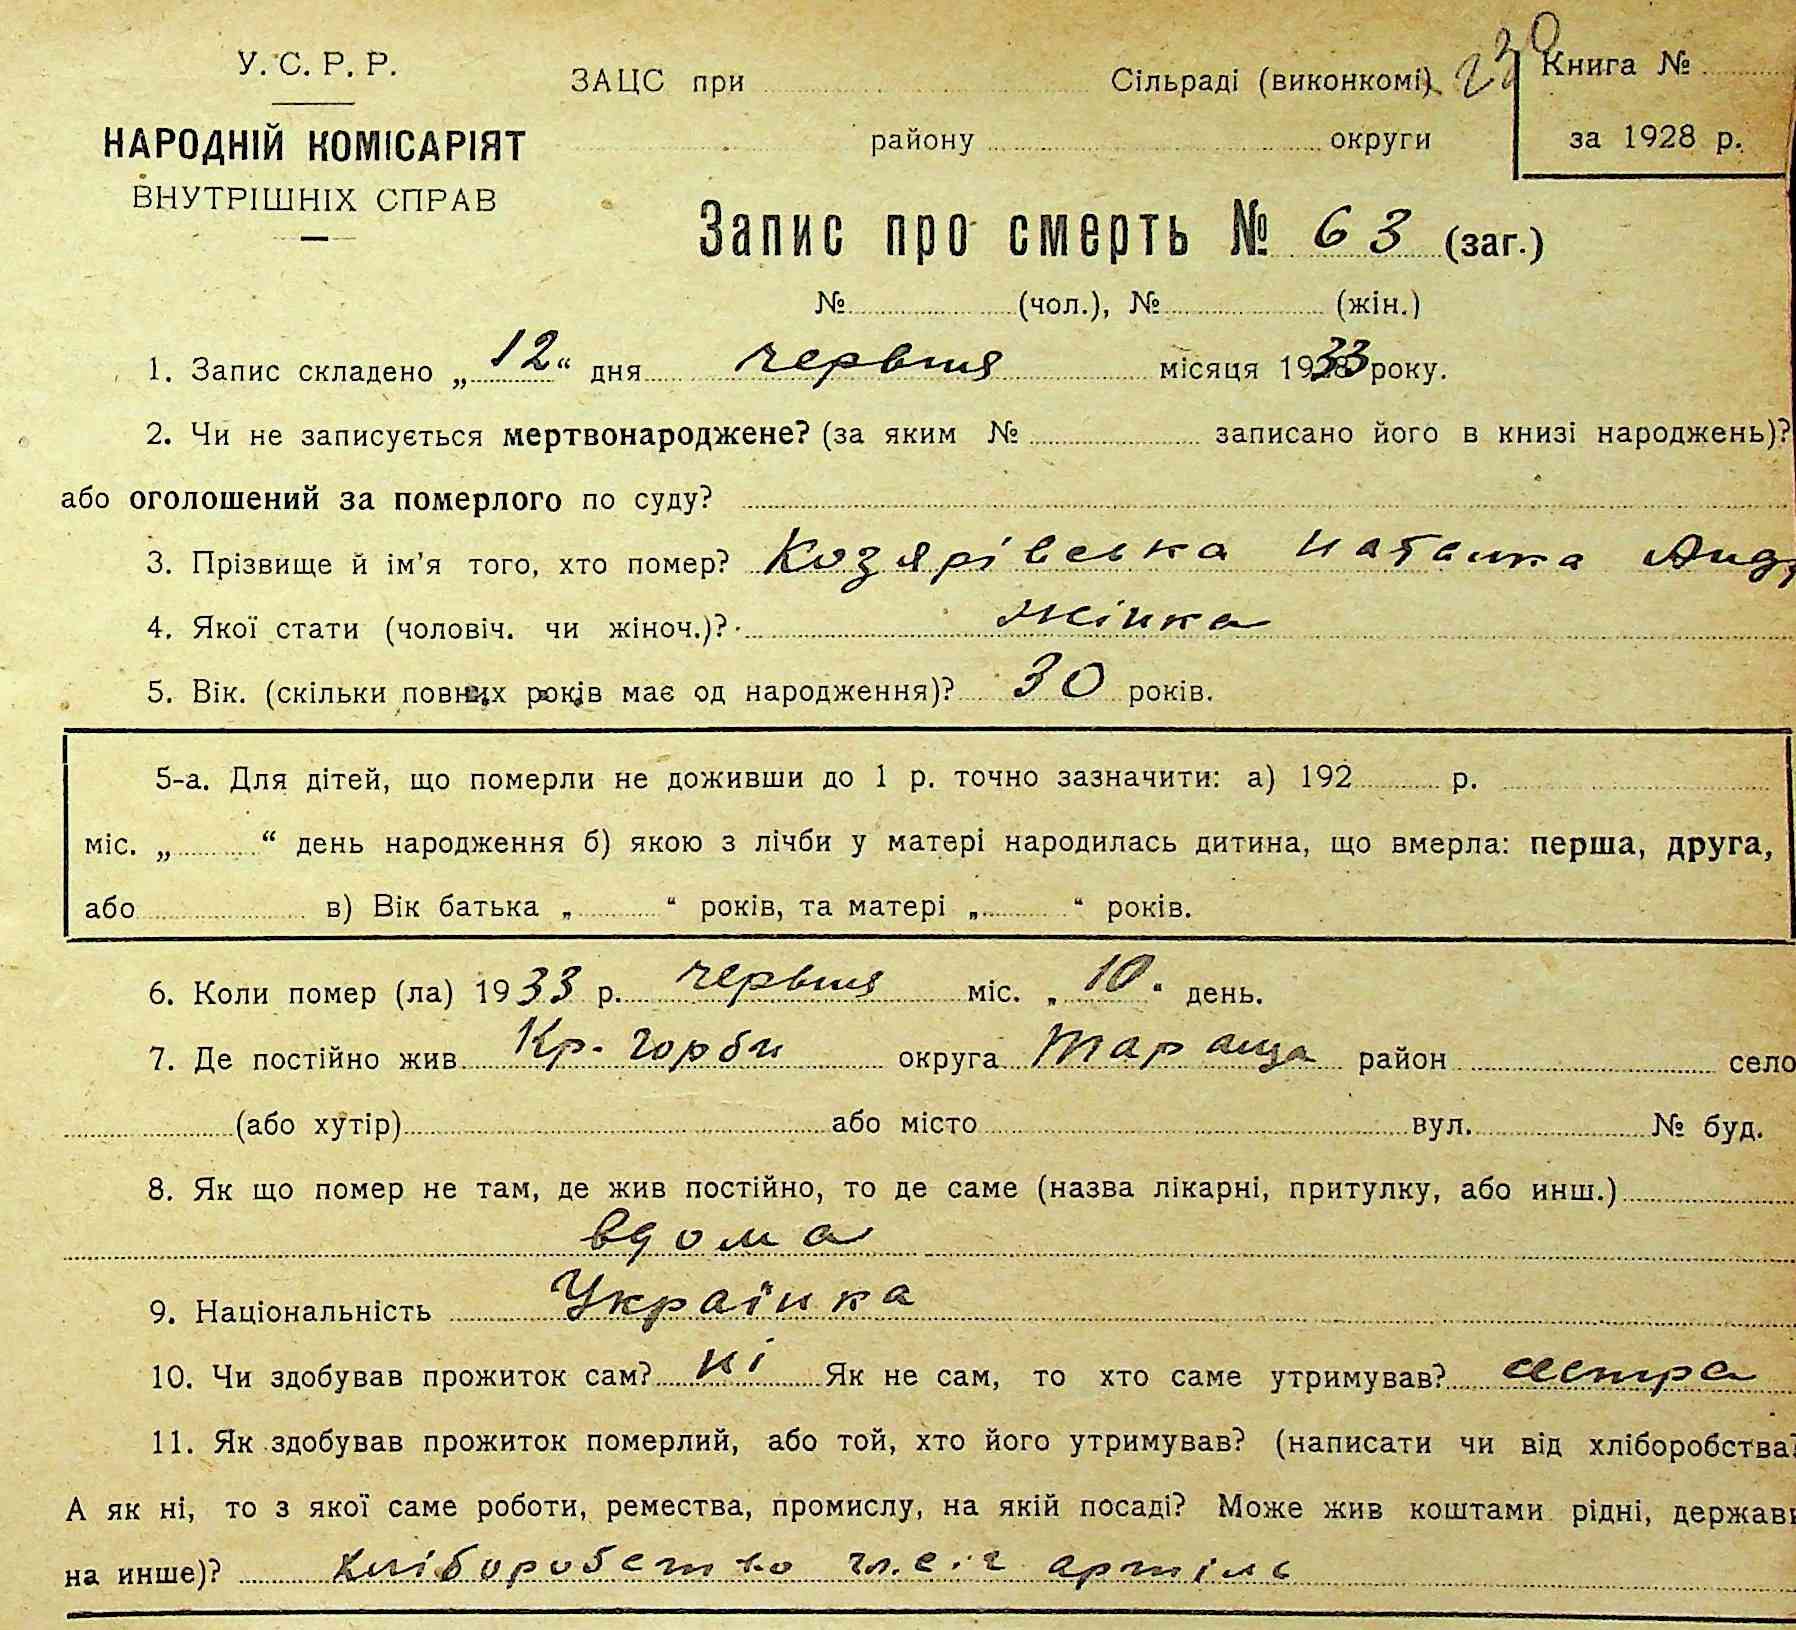 У. С. Р. Р.
НАРОДНІЙ КОМІСАРІЯТ
ВНУТРІШНІХ СПРАВ
ЗАЦС при Сільраді (виконкомі) 230
району округи
Книга №
за 1928 р.
Запис про смерть № 63 (заг.)
№ (чол.), № (жін.)
1. Запис складено „12“ дня червня місяця 1933 року.
2. Чи не записується мертвонароджене? (за яким № записано його в книзі народжень)?
або оголошений за померлого по суду?
3. Прізвище й ім'я того, хто помер? Козярівська Наталка Анд
4. Якої стати (чоловіч. чи жіноч.)? жінка
5. Вік. (скільки повних років має од народження)? 30 років.
5-а. Для дітей, що померли не доживши до 1 р. точно зазначити: а) 192 р.
міс. „ “ день народження б) якою з лічби у матері народилась дитина, що вмерла: перша, друга,
або в) Вік батька „ “ років, та матері „ “ років.
6. Коли помер (ла) 1933 р. червня міс. „10“ день.
7. Де постійно жив Кр. горби округа Тараща район село
(або хутір) або місто вул. № буд.
8. Як що помер не там, де жив постійно, то де саме (назва лікарні, притулку, або инш.)
вдома
9. Національність Українка
10. Чи здобував прожиток сам? ні Як не сам, то хто саме утримував? сестра
11. Як здобував прожиток померлий, або той, хто його утримував? (написати чи від хліборобства?
А як ні, то з якої саме роботи, ремества, промислу, на якій посаді? Може жив коштами рідні, держави
на инше)? хліборобство артіль